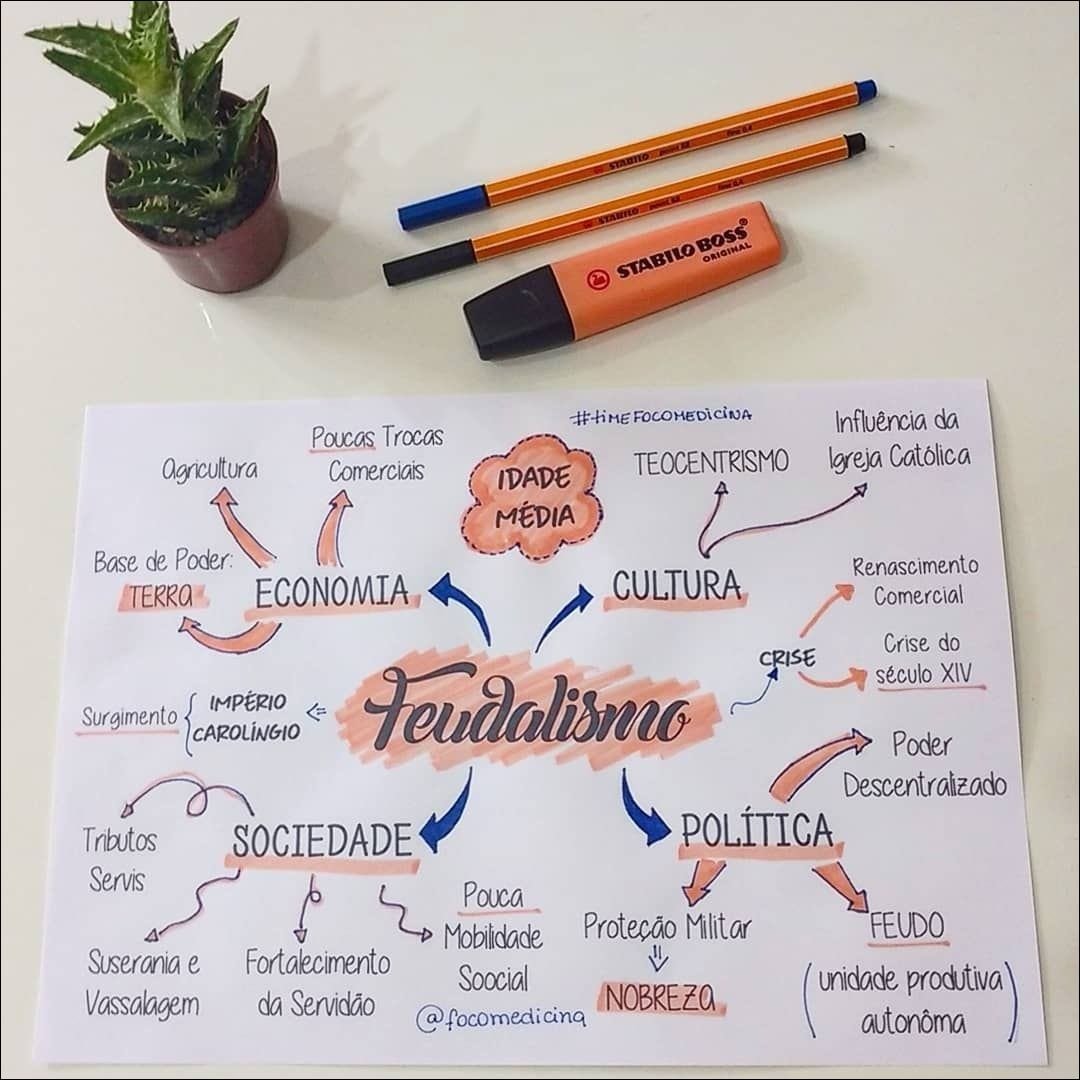 STABILO point 88 fine 0,4
STABILO point 88 fine 0,4
STABILO BOSS®
ORIGINAL
#timeFOCOMEDICINA
IDADE
MÉDIA
ECONOMIA
Agricultura
Poucas Trocas
Comerciais
Base de Poder:
TERRA
CULTURA
TEOCENTRISMO
Influência da
Igreja Católica
Feudalismo
CRISE
Renascimento
Comercial
Crise do
século XIV
Surgimento
IMPÉRIO
CAROLÍNGIO
SOCIEDADE
Tributos
Servis
Suserania e
Vassalagem
Fortalecimento
da Servidão
Pouca
Mobilidade
Soocial
POLÍTICA
Poder
Descentralizado
Proteção Militar
NOBREZA
FEUDO
(unidade produtiva
autonôma)
@focomedicina